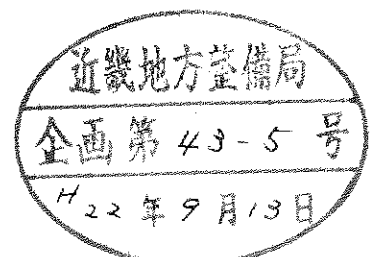 近畿地方整備局
企画第43-5号
H22年9月13日